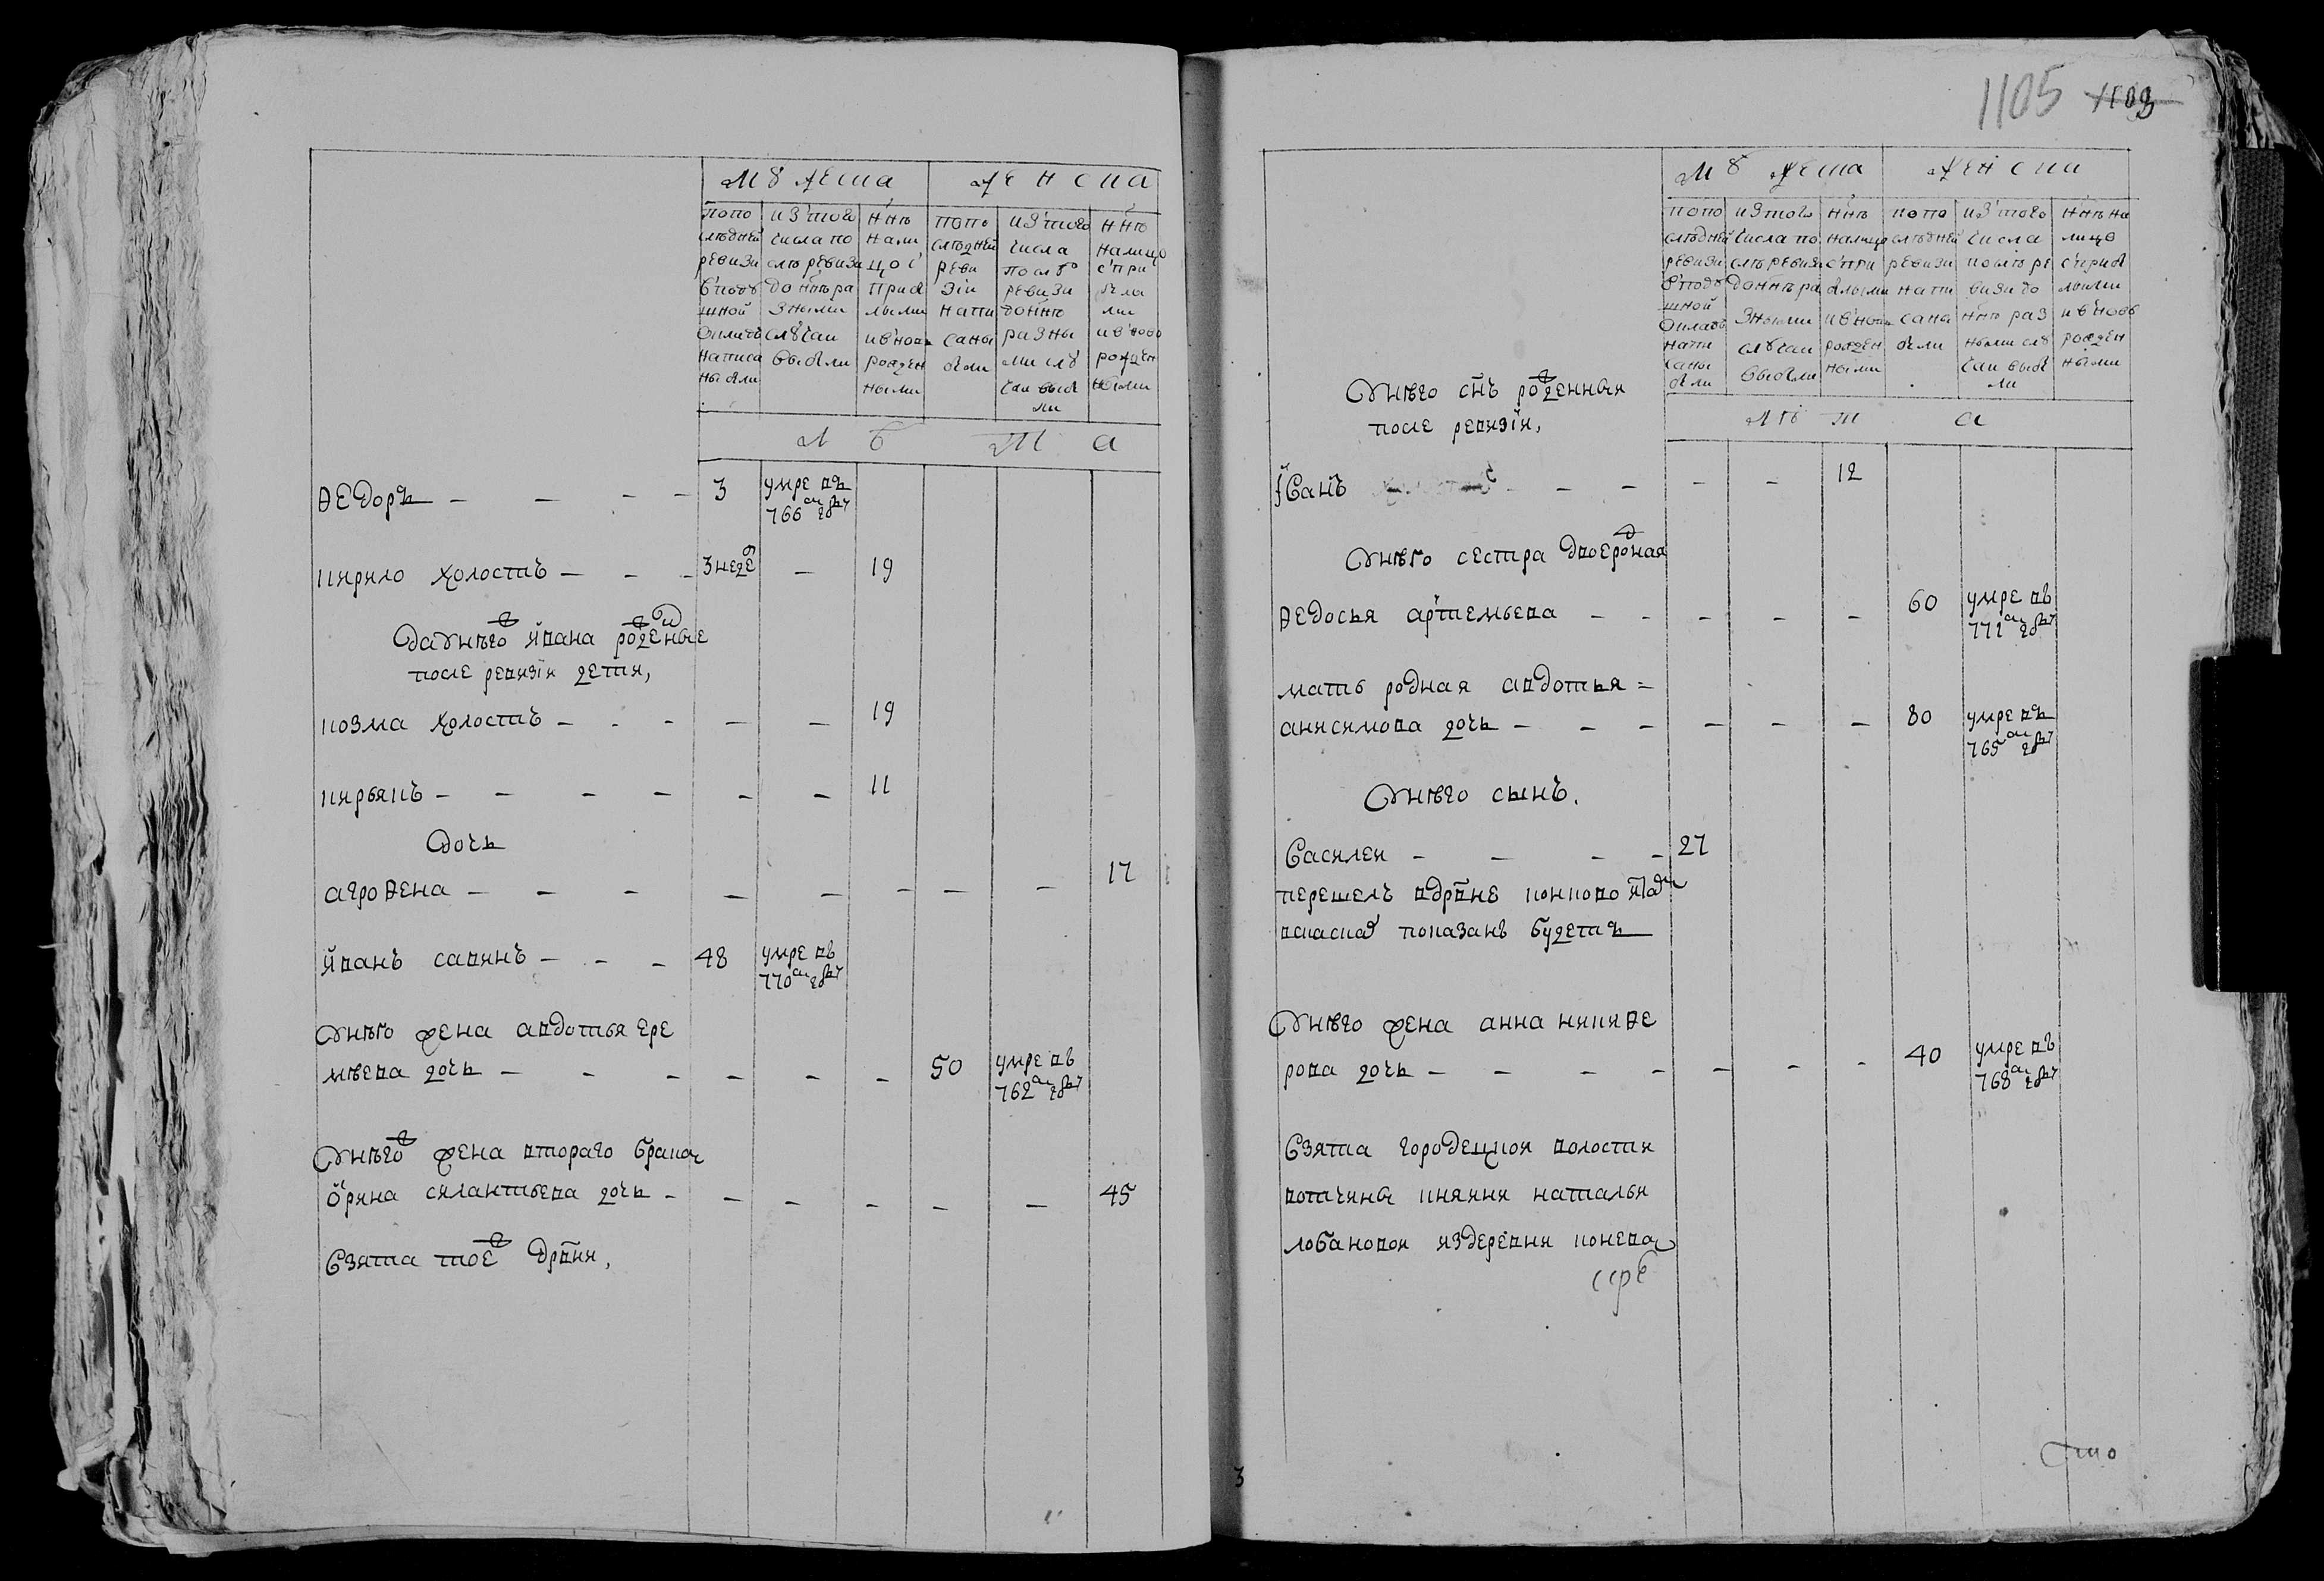 Мꙋжеска
Женска
попо
слѣдней
ревизи
в подꙋ
шной
окладъ
написа
ны были
из того
числа по
слѣ ревизи
до ннѣ ра
зными
слꙋчаи
выбыли
ннѣ
нали
цо с
прибы
лыми
и вновь
рожден
ными
попо
слѣдней
реви
зiи
напи
саны
были
из того
числа
послѣ
ревизи
до ннѣ
разны
ми слꙋ
чаи выбы
ли
ннѣ
налицо
с при
былы
ми
и вново
рожден
ными
Лѣта
Ѳедоръ — — — — 3 умре въ
766м годꙋ
кирило холостъ — — — 3 неде — 19
Да у него ж ивана рожденые
после ревизiи дети,
козма холостъ — — — — — 19
кирьякъ — — — — — — 11
Дочь
агроѳена — — — — — — — — 17
иванъ савинъ — — — 48 умре въ
770м годꙋ
У него жена авдотья ере
мѣева дочь — — — — — — 50 умре въ
762м годꙋ
У него ж жена втораго брака
орина силантьева дочь — — — — — — 45
Взята тое ж дрвни,
1105 1103
Мꙋжеска
Женска
попо
слѣдней
ревизи
в подꙋ
шной
окладъ
напи
саны
были
из того
числа по
слѣ ревизи
до ннѣ ра
зными
слꙋчаи
выбыли
ннѣ
налицо
с при
былыми
и вновь
рожден
ными
попо
слѣдней
ревизи
напи
саны
были
из того
числа
послѣ ре
визи до
ннѣ раз
ными слꙋ
чаи выбы
ли
ннѣ на
лицо
с прибы
лыми
и вновь
рожден
ными
Лѣта
У него снъ рожденныи
после ревизiи,
Иванъ — — — — — 12
У него сестра двоеродная
Ѳедосья артемьева — — — — — 60 умре въ
772м годꙋ
мать родная авдотья =
анисимова дочь — — — — — — 80 умре въ
765м годꙋ
У него сынъ.
Василеи — — — — 27
перешелъ в дрвне
показанъ будетъ
У него жена анна никиѳе
рова дочь — — — — — — — 40 умре въ
768м годꙋ
Взята городецкои волости
вотчины княини натальи
лобановои из деревни конева
3